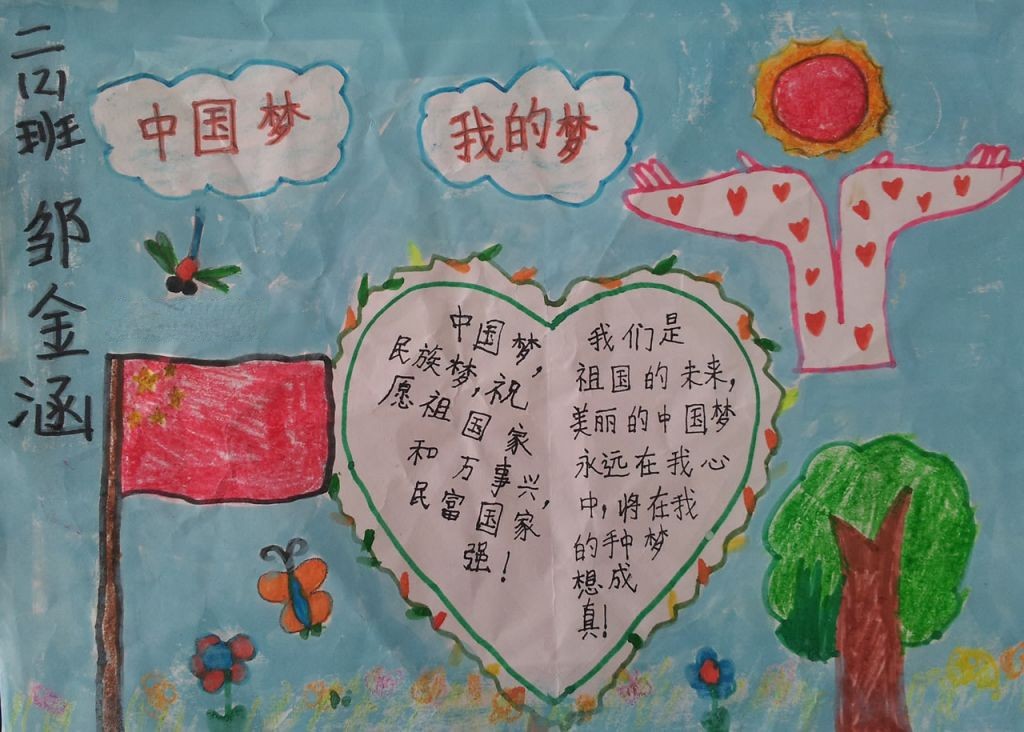 二四班 邹金涵
中国梦
我的梦
中国梦,
民族梦,祝
愿祖国家
和万事兴,
民富国家
强!
我们是
祖国的未来,
美丽的中国梦
永远在我心
中,将在我
的手中梦
想成
真!